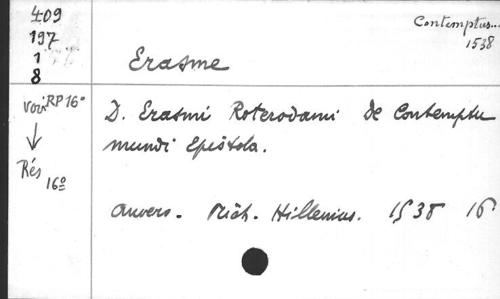 409
197
1
8
Contemptus...
1538
Erasme
voir RP 16°
Rés
16°
D. Erasmi Roterodami de Contemptu
mundi Epistola.
Anvers. Mich. Hillenius. 1538 16°